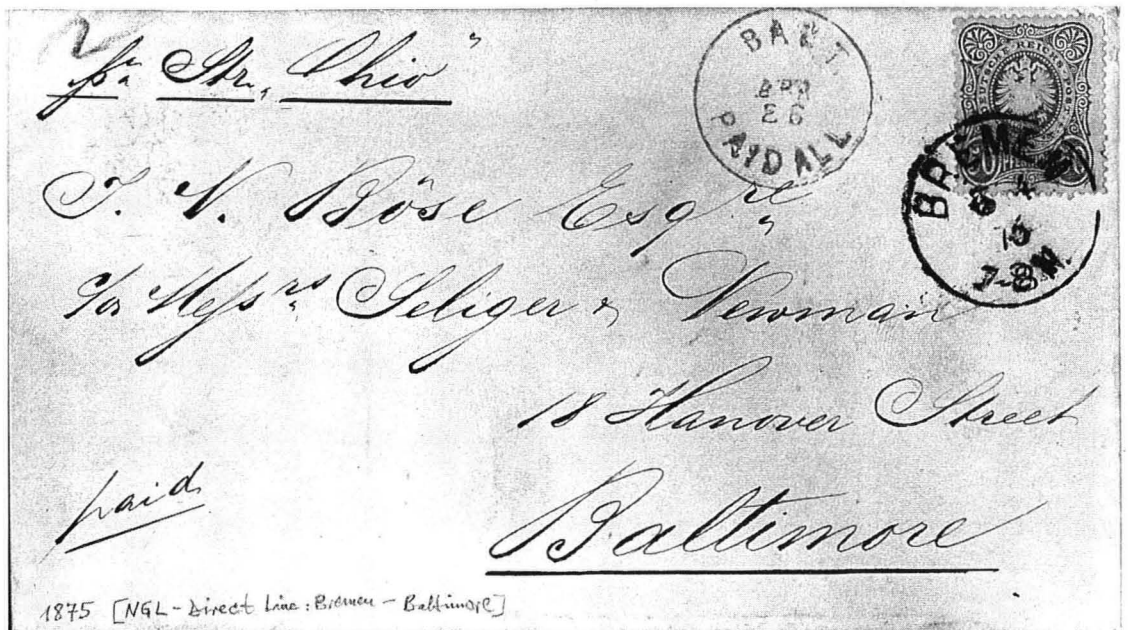 2
pr Str. "Ohio"
BALT.
APR
26
PAID ALL
DEUTSCHE REICHS-POST
BREMEN
8 4
7-8N.
J. N. Böse Esqre
c/o Messrs Seliger & Newman
18 Hanover Street
paid
Baltimore
1875 [NGL - Direct Line: Bremen - Baltimore]